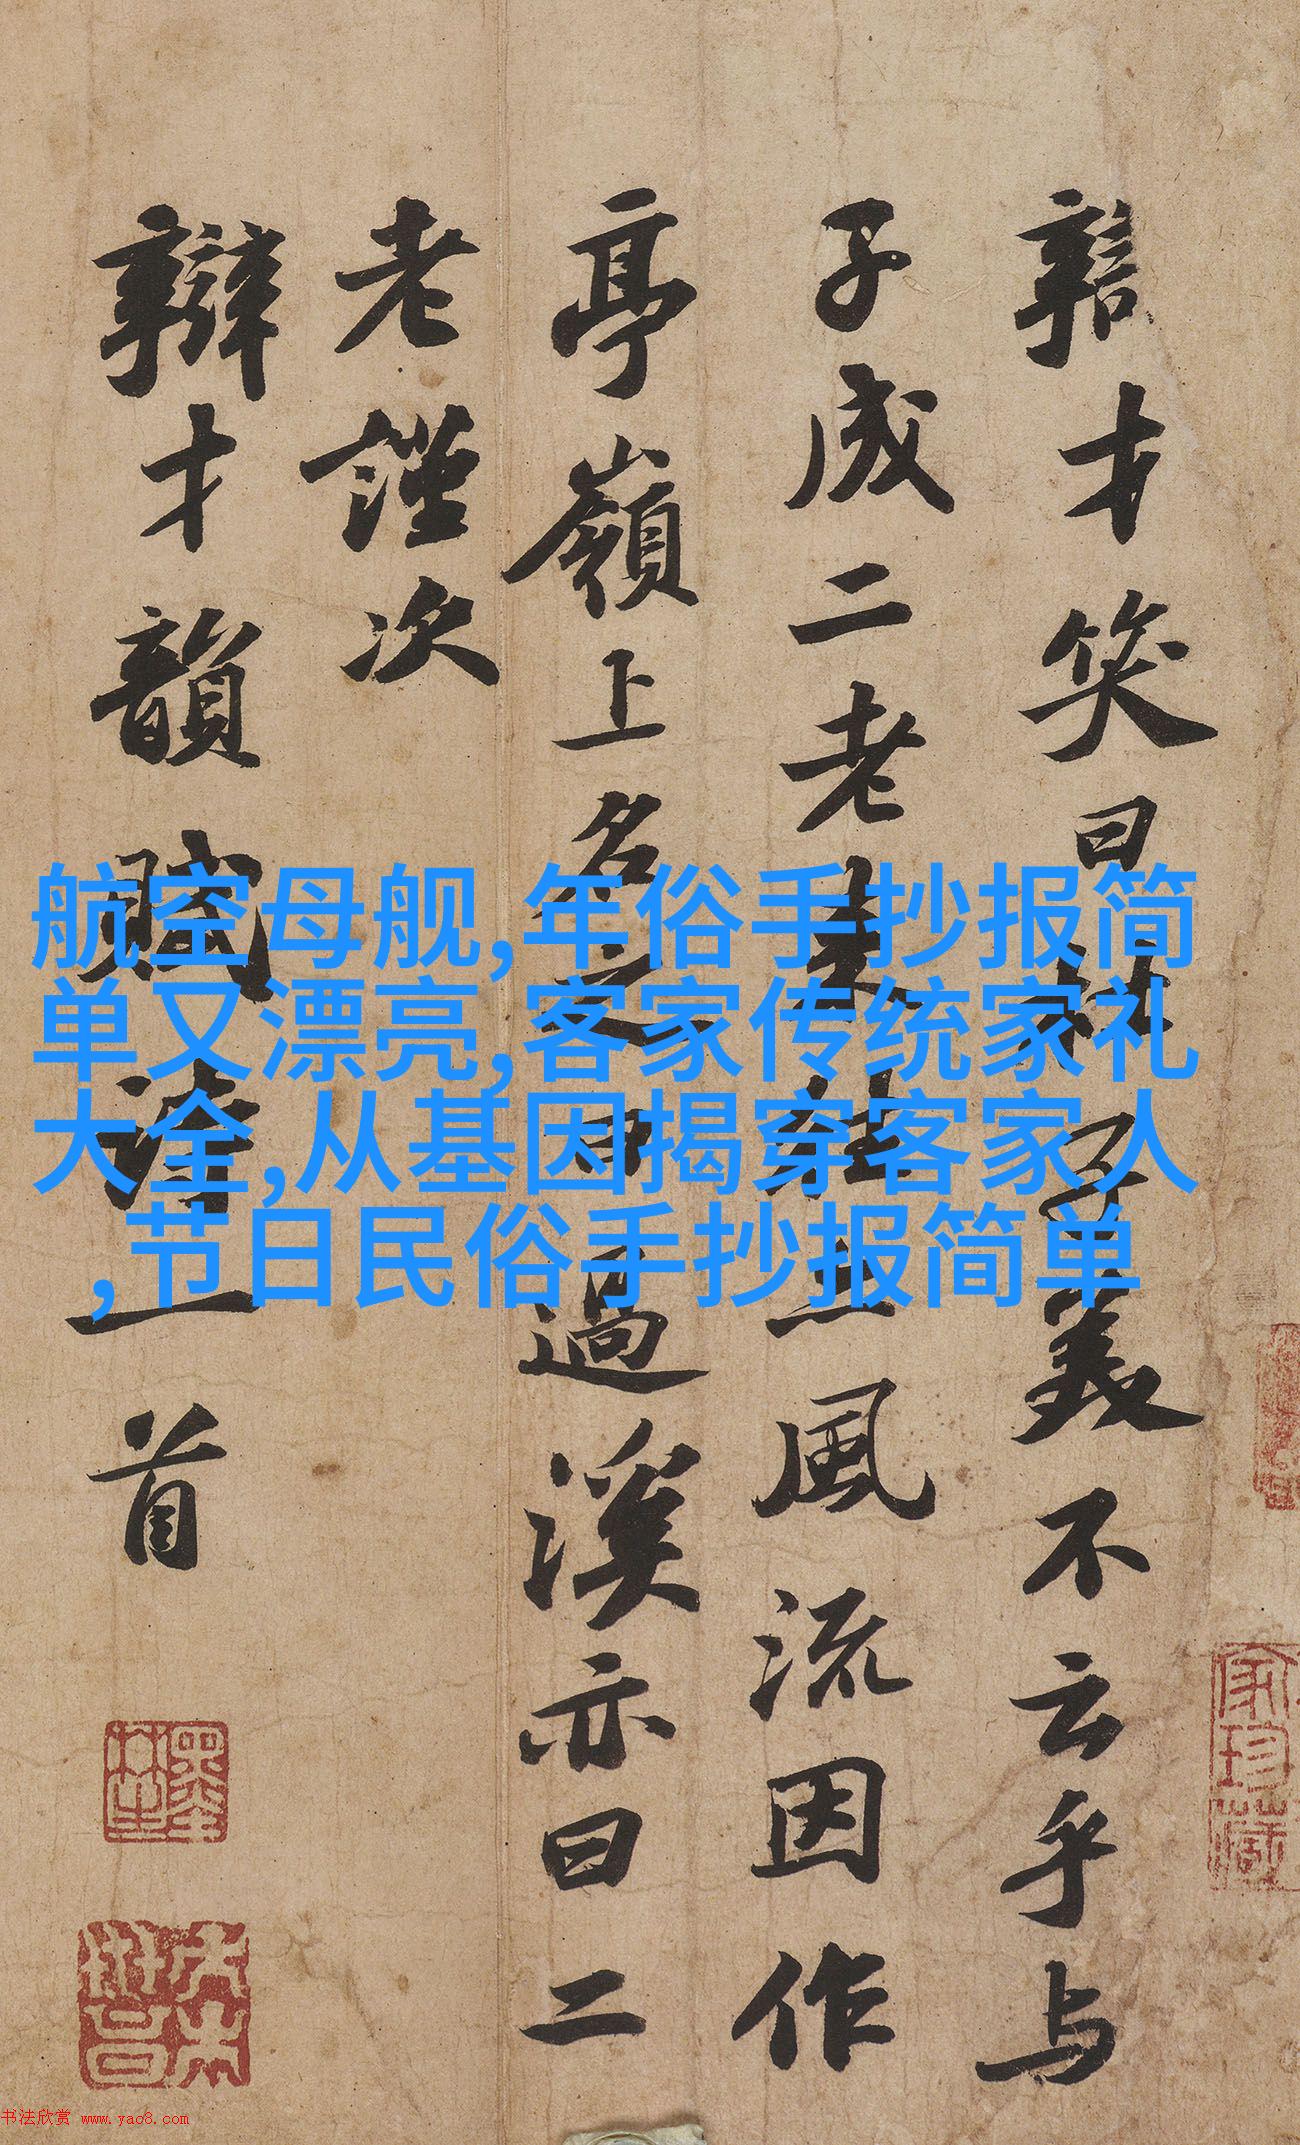 辯才笑曰杜子美不云乎与
子成二老来往亦風流因作
亭嶺上名之曰過溪亦曰二
老謹次
辯才韻賦詩一首
航空母舰,年俗手抄报简
单又漂亮,客家传统家礼
大全,从基因揭穿客家人
,节日民俗手抄报简单
家珍藏
书法欣赏 www.yac8.com